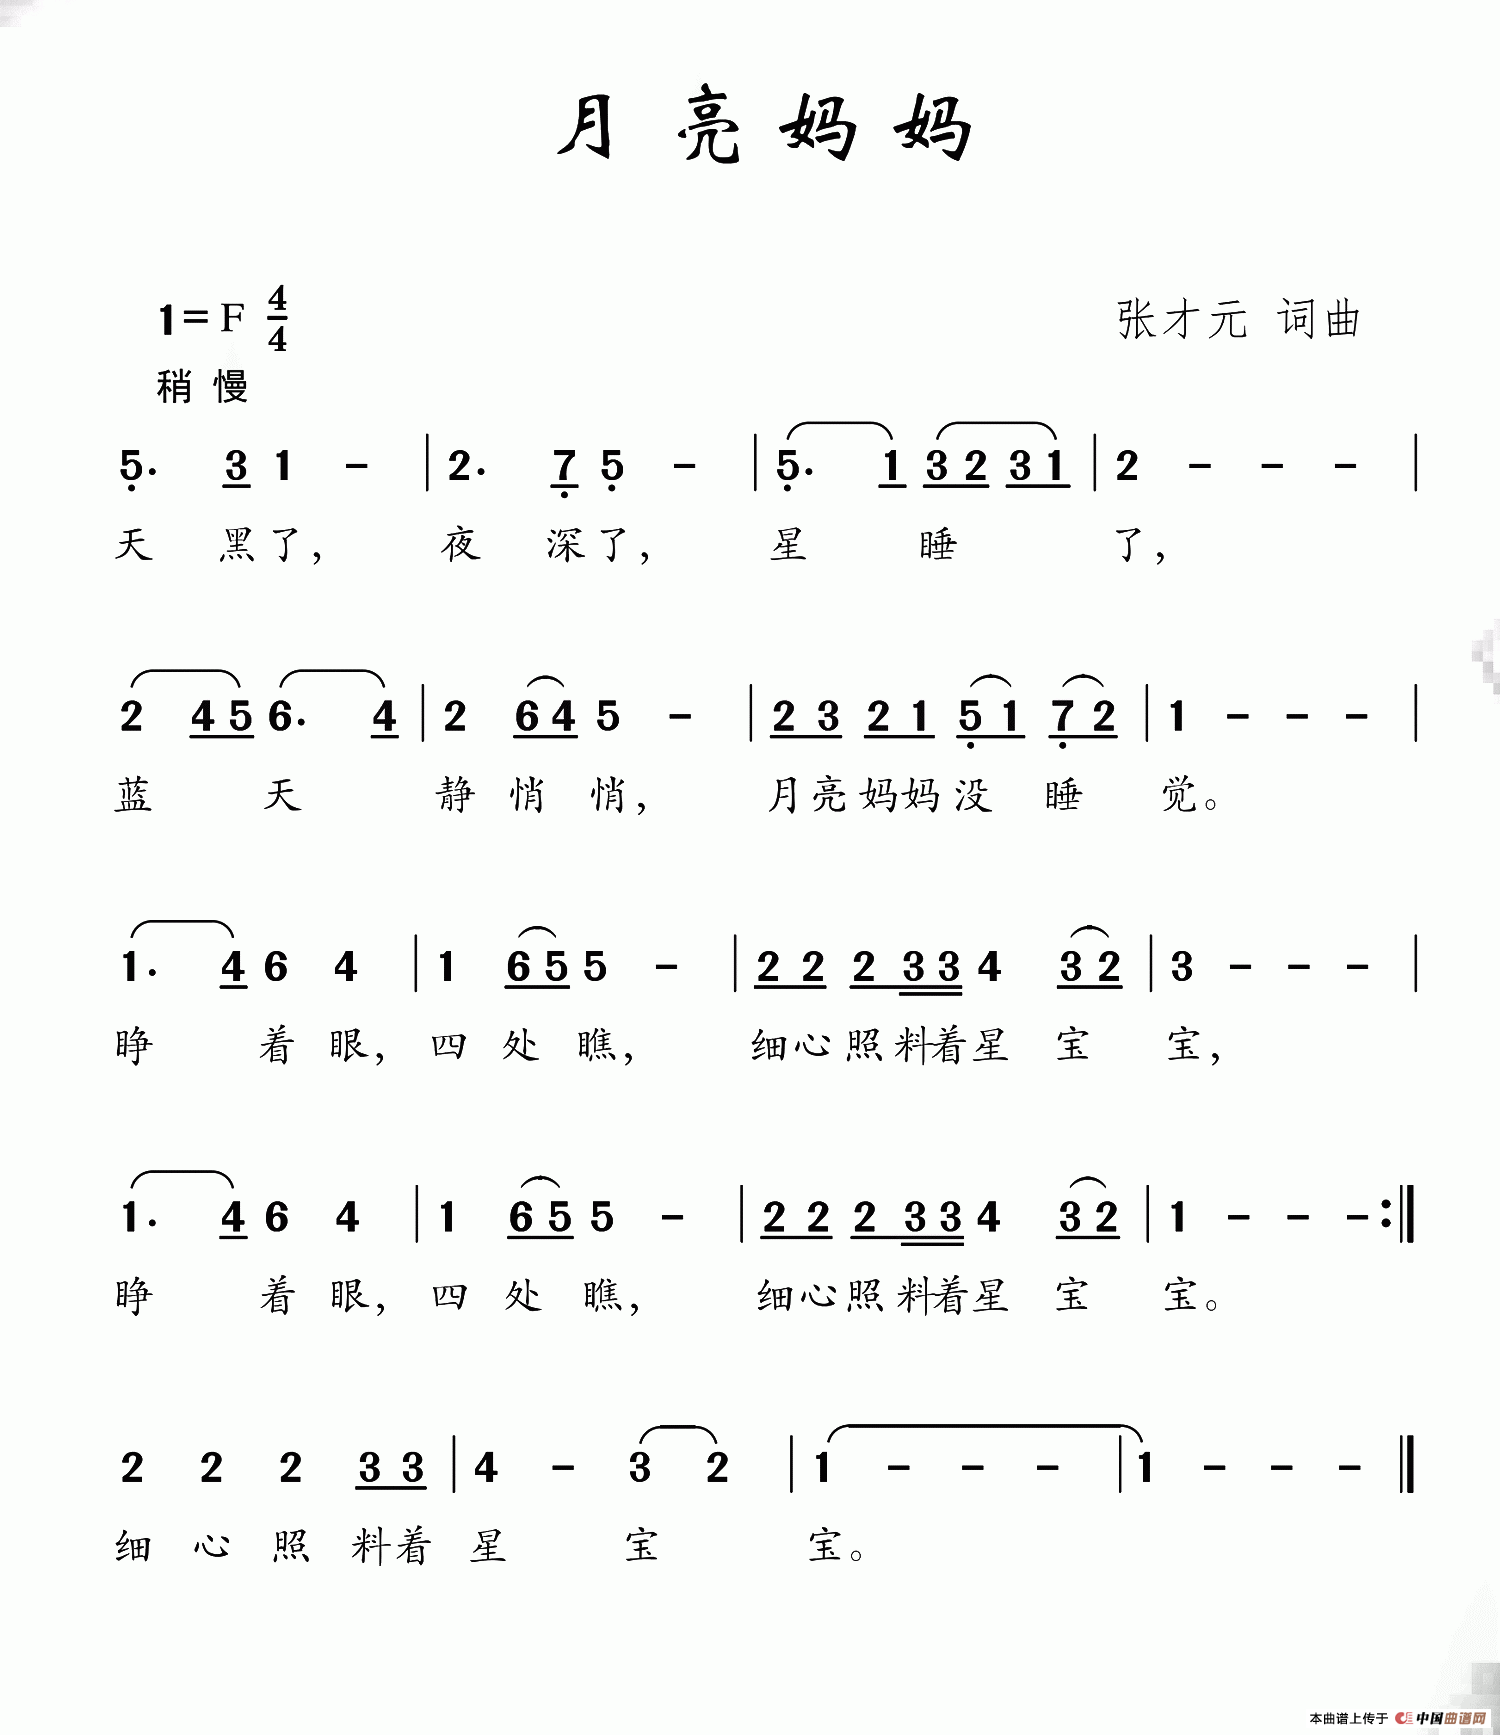 月亮妈妈
1=F 4/4
张才元 词曲
稍 慢
5. 3 1 - | 2. 7 5 - | 5. 1 3 2 3 1 | 2 - - - |
天 黑了, 夜 深了, 星 睡 了,
2 4 5 6. 4 | 2 6 4 5 - | 2 3 2 1 5 1 7 2 | 1 - - - |
蓝 天 静 悄 悄, 月亮妈妈没 睡 觉。
1. 4 6 4 | 1 6 5 5 - | 2 2 2 3 3 4 3 2 | 3 - - - |
睁 着 眼, 四 处 瞧, 细心照料着星 宝 宝,
1. 4 6 4 | 1 6 5 5 - | 2 2 2 3 3 4 3 2 | 1 - - - :||
睁 着 眼, 四 处 瞧, 细心照料着星 宝 宝。
2 2 2 3 3 | 4 - 3 2 | 1 - - - | 1 - - - ||
细 心 照 料着 星 宝 宝。
本曲谱上传于 中国曲谱网